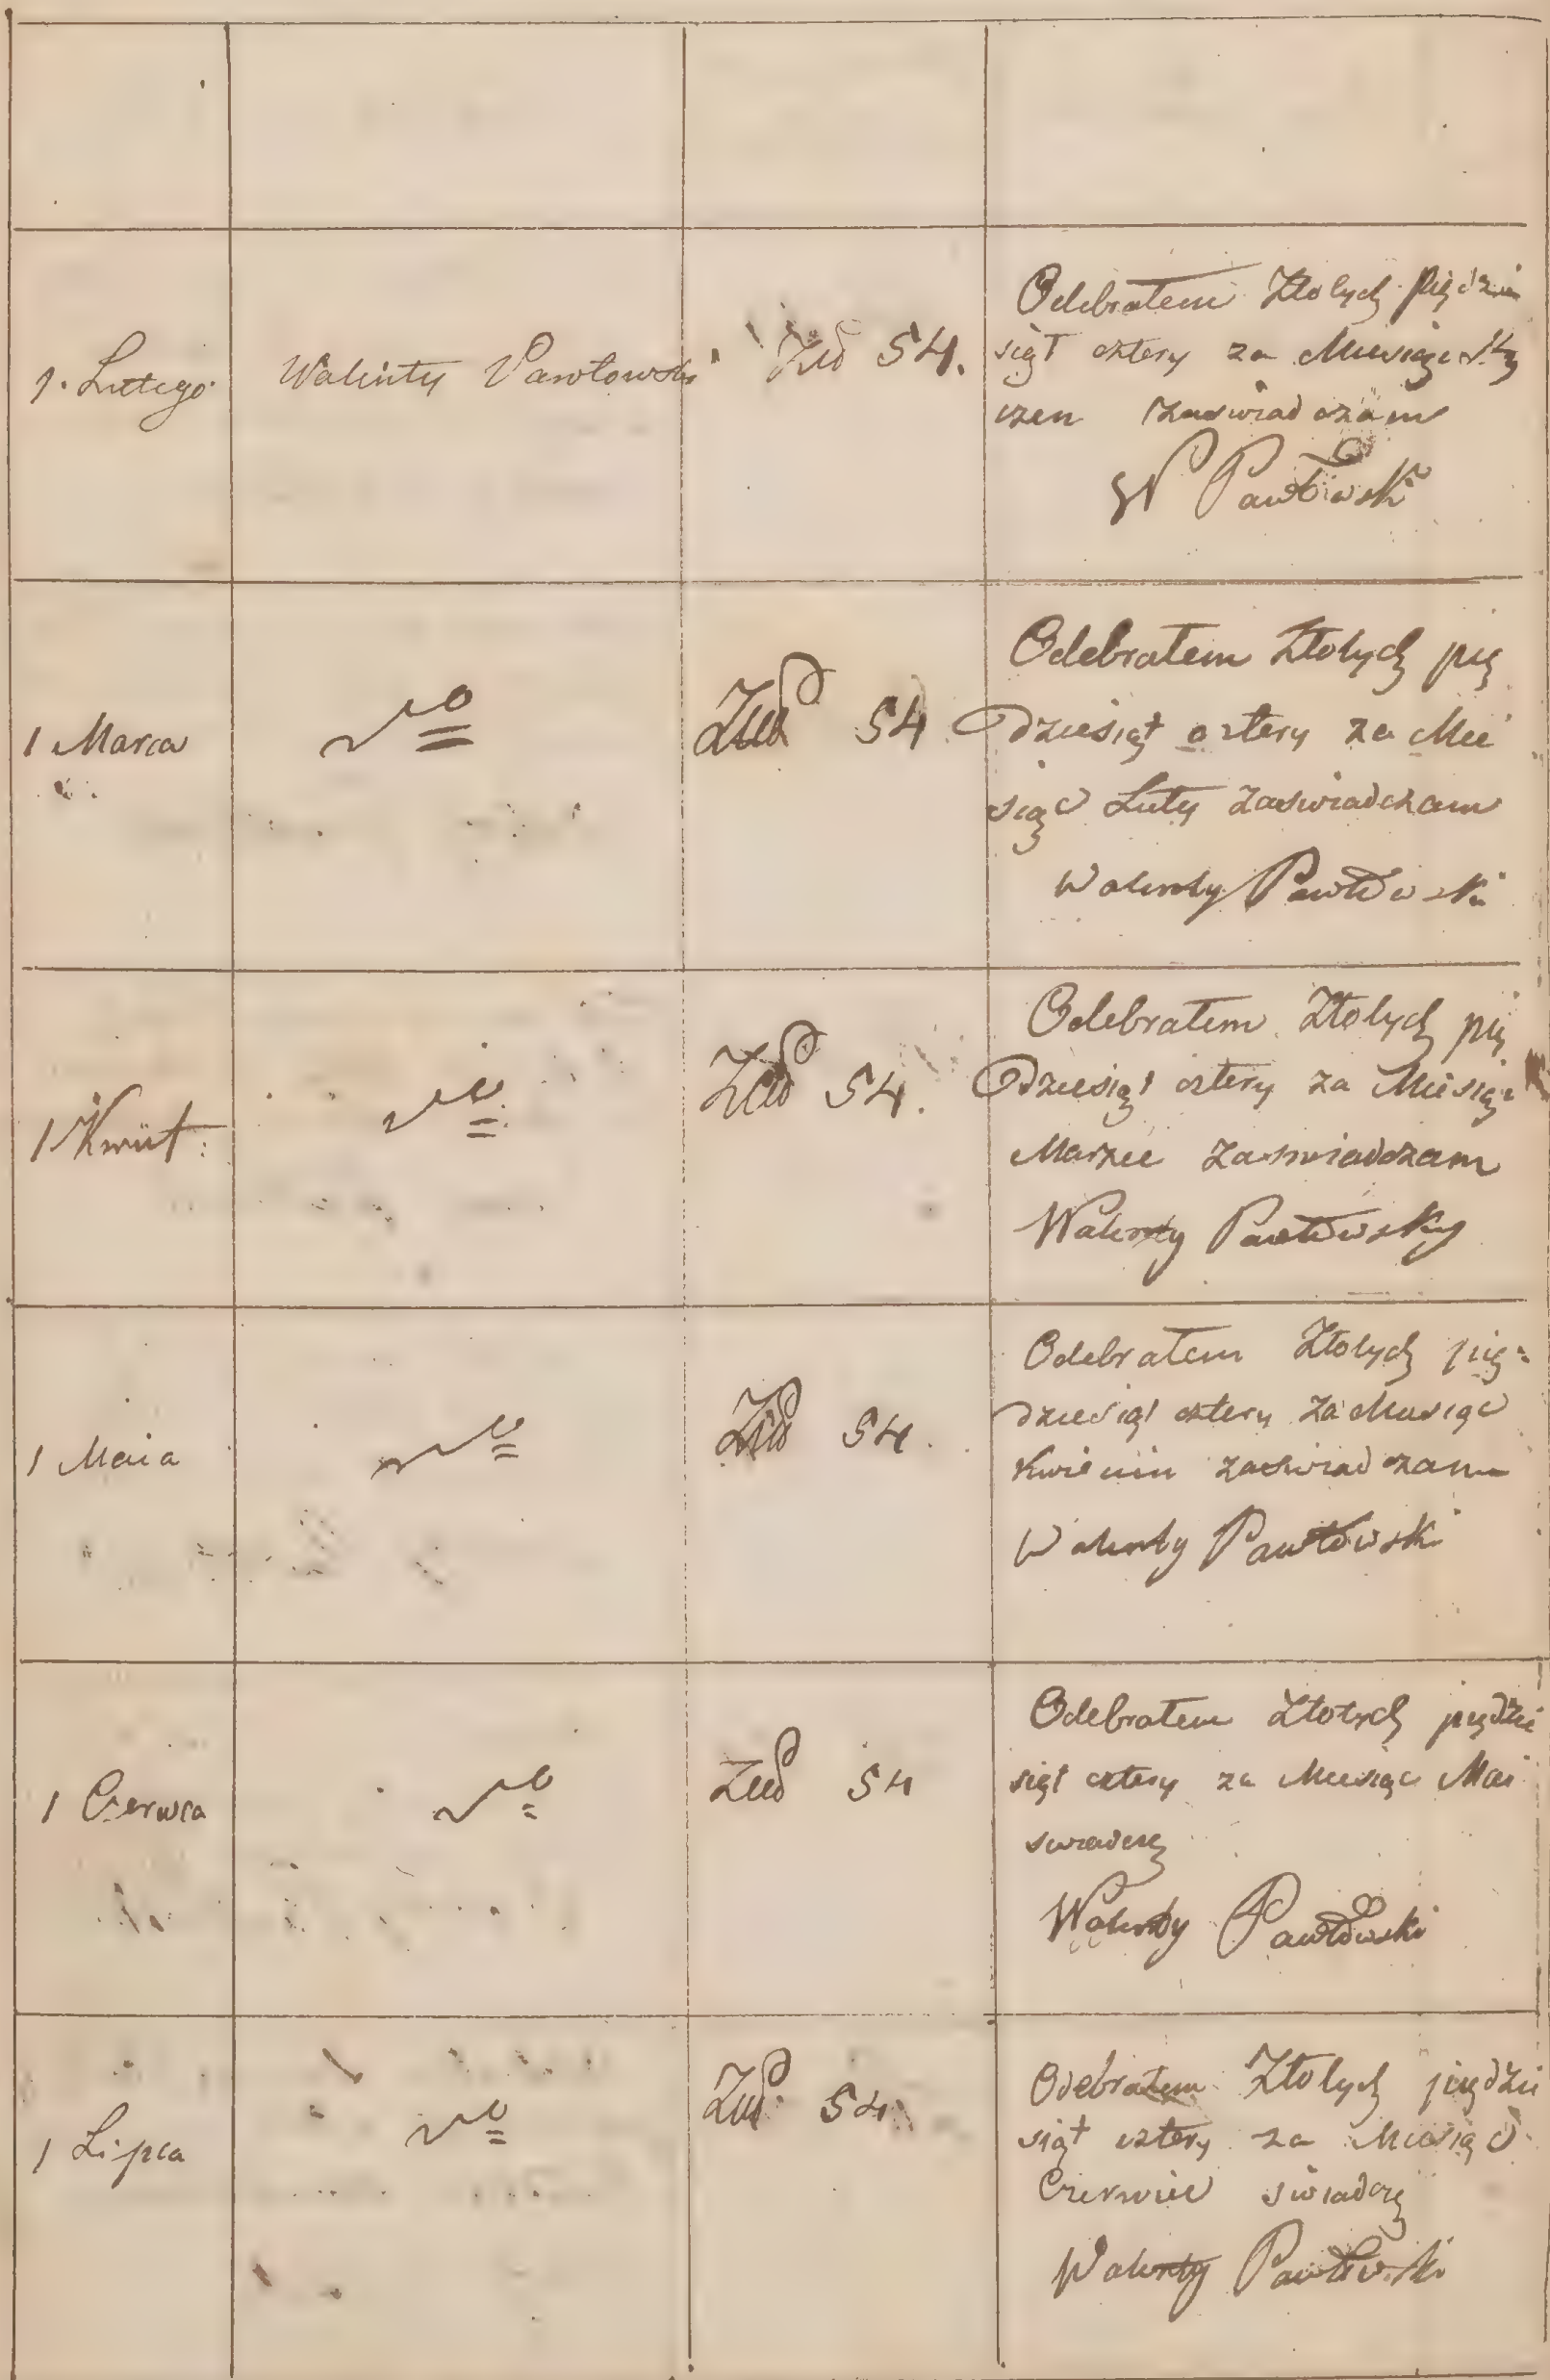 1. Lutego
Walenty Pawłowski
Złło 54.
Odebrałem Złotych pięćdzie
siąt cztery za Miesiąc Sty
czen zaswiadczam
W Pawłowski
1 Marca
54
Odebrałem Złotych pię
dziesiąt cztery za Mie
siąc Luty zaswiadczam
Walenty Pawłowski
1 Kwiet:
54.
Odebrałem Złotych pię
dziesiąt cztery za Miesiąc
Marzec zaswiadczam
Walenty Pawłowsky
1 Maia
54.
Odebrałem Złotych pię=
dziesiąt cztery za Miesiąc
Kwiecin zaswiadczam
Walenty Pawłowski
1 Czerwca
54
Odebrałem Złotych piędzie
siąt cztery za Miesiąc Mai
swiadczę
Walenty Pawłowski
1 Lipca
54.
Odebrałem Złotych piędzie
siąt cztery za Miesiąc
Czerwiec swiadczę
Walenty Pawłowski